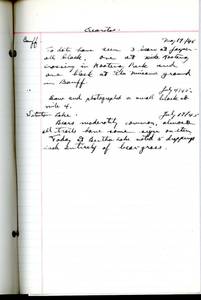 Bears
Banff May 19/45
To date have seen 3 bears at
all black, one at
crossing in Kootenay Park and
one black at the museum ground
in Banff.
July 4/45.
Saw and photographed a small black at
mile 4.
Lake. July 13/45
Bears moderately common, almost
all trails have some sign on them
Today at Bertha Lake noted 2 droppings
entirely of bear grass.